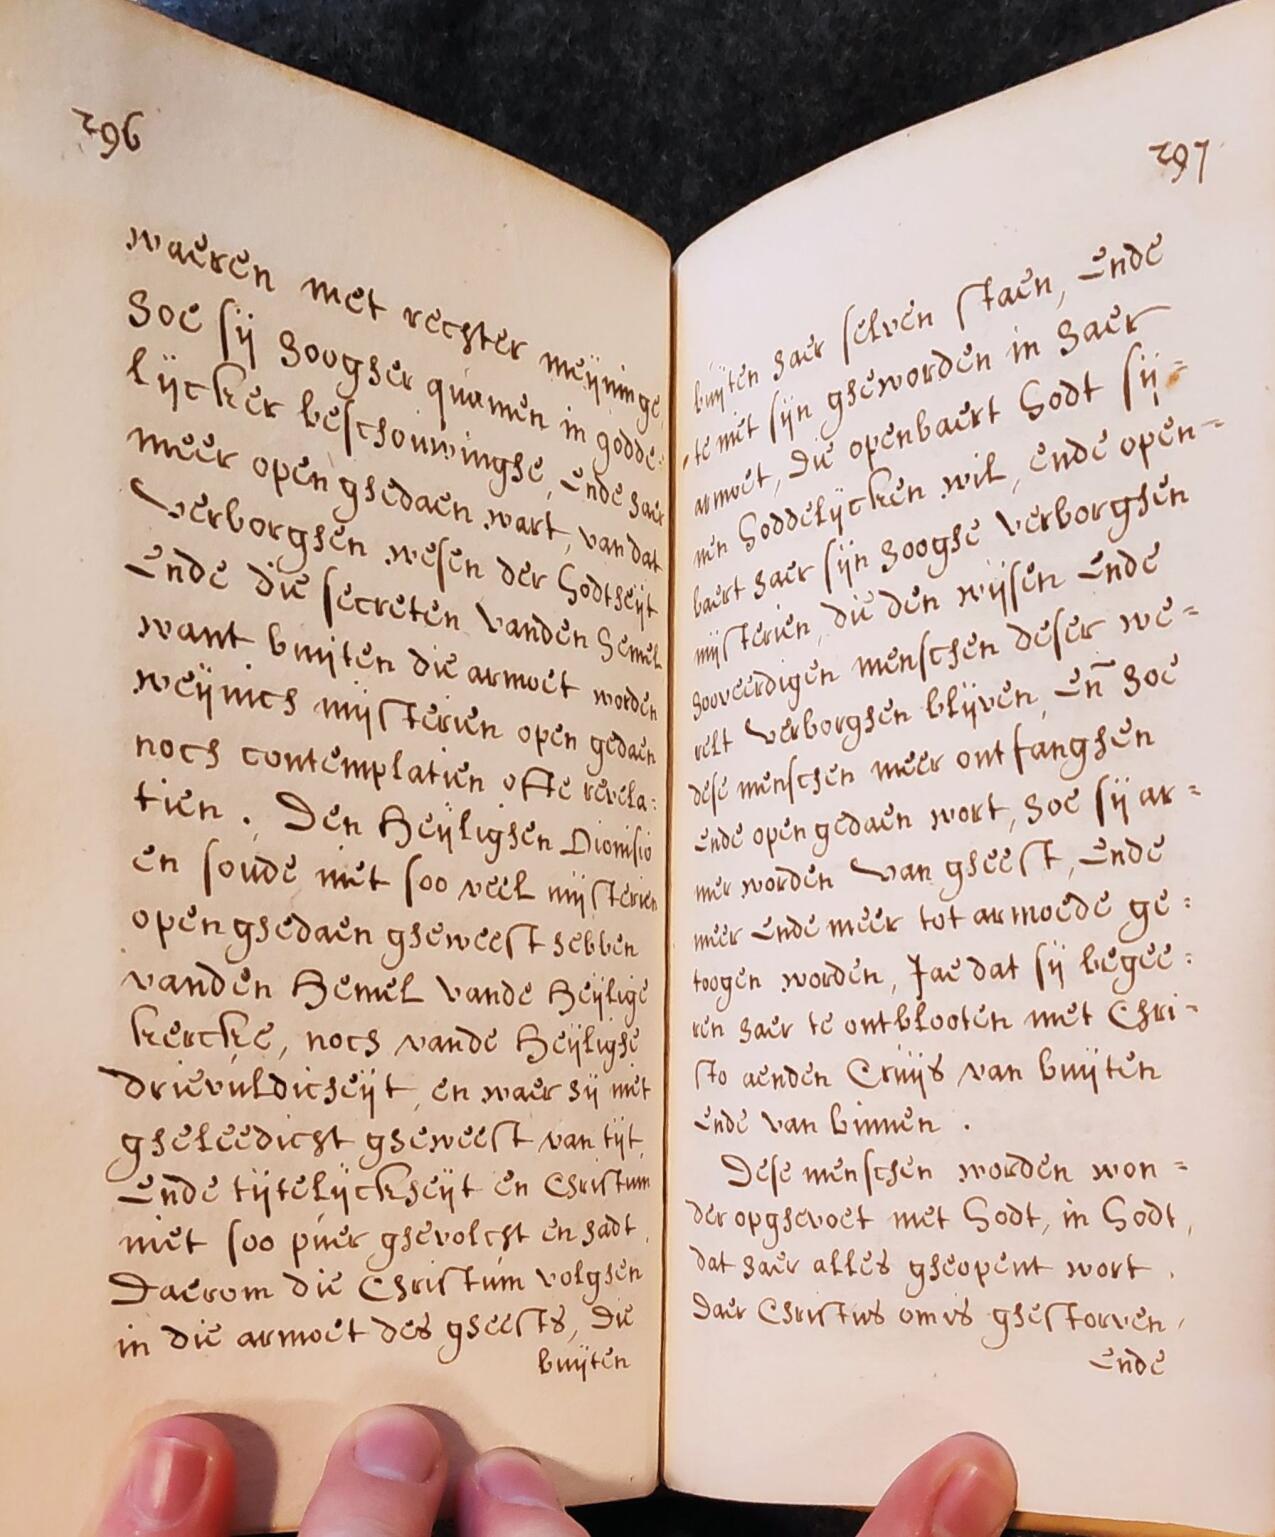 296
waeren met rechter meijninge,
hoe sij hoogher quamen in godde:
lijcker beschouwinghe, Ende haer
meer open ghedaen wart, van dat
verborghen wesen der Godtheijt
Ende die secreten vanden hemel
want buijten die armoet worden
weijnich mijsterien open gedaen
noch contemplatien ofte revela:
tien. Den Heijlighen Dionisio
en soude niet soo veel mijsterien
open ghedaen gheweest hebben
vanden Hemel vande Heijlige
kercke, noch vande Heijlighe
drievuldicheijt, en waer hij niet
gheleedicht gheweest van tijt,
Ende tijtelijckheijt en Christum
niet soo puer ghevolcht en hadt.
Daerom die Christum volghen
in die armoet des gheests, Die
buijten
297
buijten haer selven staen, Ende
te niet sijn gheworden in haer
armoet, Die openbaert Godt sij-
nen Goddelijcken wil, ende open-
baert haer sijn hooghe verborghen
mijsterien, die den wijsen Ende
hooveerdigen menschen deser we-
relt verborghen blijven, Eñ hoe
dese menschen meer ontfanghen
Ende open gedaen wort, hoe sij ar-
mer worden van gheest, Ende
meer Ende meer tot armoede ge:
toogen worden, Jae dat sij begee:
ren haer te ontblooten met Chri-
sto aenden Cruijs van buijten
Ende van binnen.
Dese menschen worden won-
der opghevoet met Godt, in Godt,
dat haer alles gheopent wort.
Daer Christus om us ghestorven,
Ende